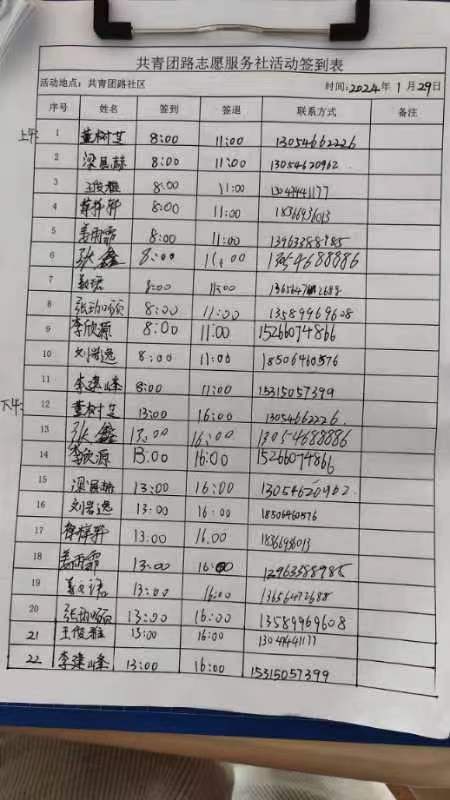 共青团路志愿服务社活动签到表
活动地点：共青团路社区 时间：2024年1月29日
序号 姓名 签到 签退 联系方式 备注
上午 1 董树芝 8:00 11:00 13054662226
2 8:00 11:00 13054620962
3 王俊雅 8:00 11:00
4 8:00 11:00
5 姜雨霜 8:00 11:00 13963388985
6 张鑫 8:00 11:00 13054688886
7 8:00 11:00
8 8:00 11:00 13589969608
9 李欣源 8:00 11:00 15266074866
10 8:00 11:00 18506460576
11 李建峰 8:00 11:00 15315057399
下午 12 董树芝 13:00 16:00 13054662226
13 张鑫 13:00 16:00 13054688886
14 李欣源 13:00 16:00 15266074866
15 13:00 16:00 13054620962
16 13:00 16:00 18506460576
17 13.00 16.00
18 姜雨霜 13:00 16:00 12963388985
19 13:00 16:00 13656472688
20 13:00 16:00 13589969608
21 王俊雅 13:00 16:00
22 李建峰 13:00 16:00 15315057399